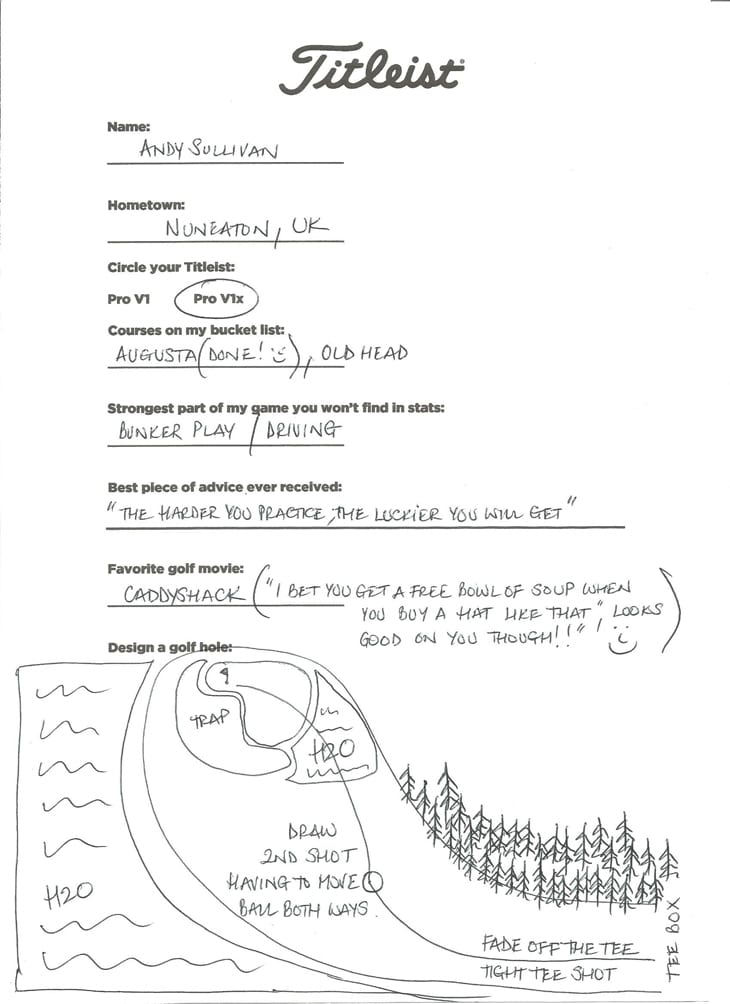 Titleist
Name:
ANDY SULLIVAN
Hometown:
NUNEATON, UK
Circle your Titleist:
Pro V1 Pro V1x
Courses on my bucket list:
AUGUSTA (DONE! ), OLD HEAD
Strongest part of my game you won't find in stats:
BUNKER PLAY / DRIVING
Best piece of advice ever received:
"THE HARDER YOU PRACTICE, THE LUCKIER YOU WILL GET"
Favorite golf movie:
CADDYSHACK ("I BET YOU GET A FREE BOWL OF SOUP WHEN
YOU BUY A HAT LIKE THAT" LOOKS
GOOD ON YOU THOUGH!!"! )
Design a golf hole:
TRAP
H2O
DRAW
2ND SHOT
HAVING TO MOVE
BALL BOTH WAYS.
H2O
FADE OFF THE TEE
TIGHT TEE SHOT
TEE BOX